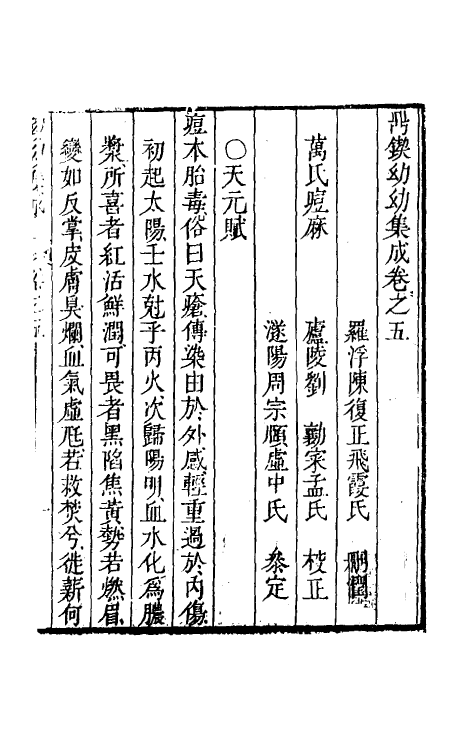 鍥幼幼集成卷之五
羅浮陳復正飛霞氏 刪潤
萬氏痘麻 廬陵劉 勷寀孟氏 校正
遂陽周宗頤虛中氏 叅定
○天元賦
痘本胎毒俗曰天瘡傳染由於外感輕重過於內傷
初起太陽壬水尅乎丙火次歸陽明血水化爲膿
漿所喜者紅活鮮潤可畏者黑陷焦黃勢若燃眉
變如反掌皮膚臭爛血氣虛尫若救焚兮徙薪何